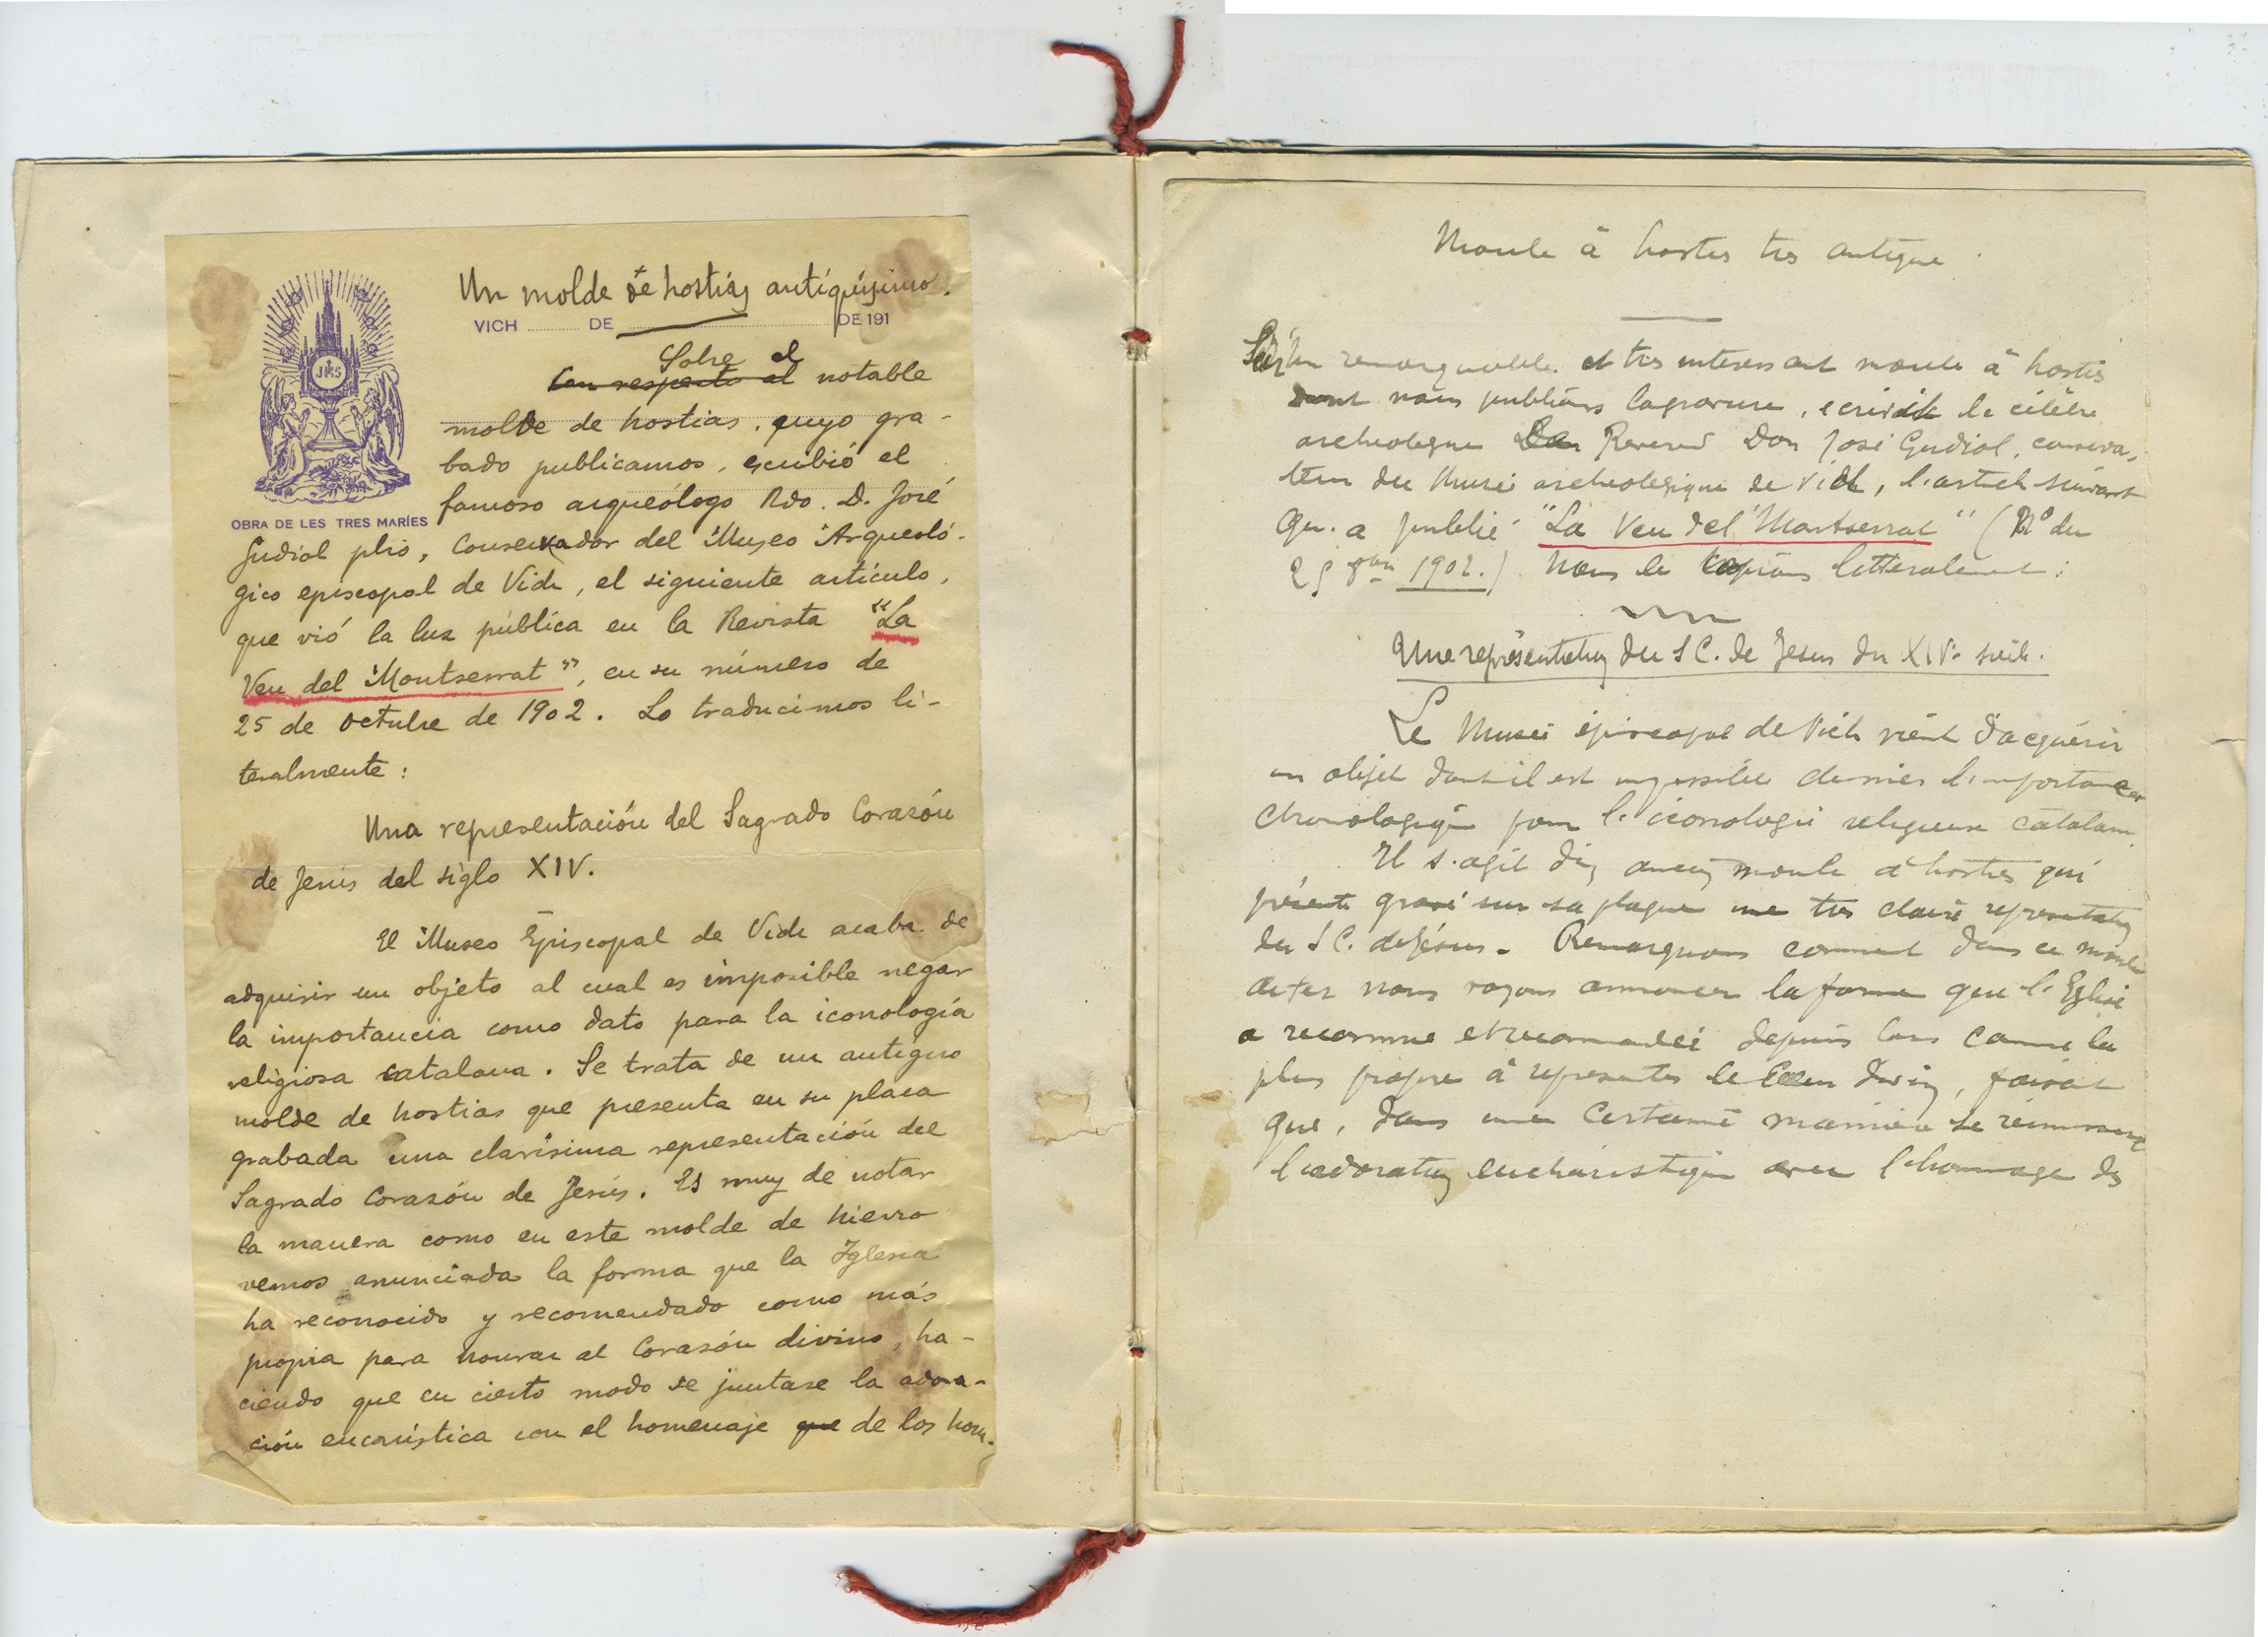 Un molde de hostias antiquísimo.
VICH DE DE 191
JHS
OBRA DE LES TRES MARÍES
Sobre el
Con respecto al notable
molde de hostias, cuyo gra-
bado publicamos, escribió el
famoso arqueólogo Rdo. D. José
Gudiol pbro, Conservador del Museo Arqueoló-
gico episcopal de Vich, el siguiente artículo,
que vió la luz pública en la Revista "La
Veu del Montserrat", en su número de
25 de octubre de 1902. Lo traducimos li-
teralmente:
Una representación del Sagrado Corazón
de Jesús del siglo XIV.
El Museo Episcopal de Vich acaba de
adquirir un objeto al cual es imposible negar
la importancia como dato para la iconología
religiosa catalana. Se trata de un antiguo
molde de hostias que presenta en su placa
grabada una clarísima representación del
Sagrado Corazón de Jesús. Es muy de notar
la manera como en este molde de hierro
vemos anunciada la forma que la Iglesia
ha reconocido y recomendado como más
propia para honrar al Corazón divino, ha-
ciendo que en cierto modo se juntase la adora-
ción eucarística con el homenaje que de los hom-
Moule à hosties très antique
remarquable et très intéressant moule à hosties
dont nous publions la gravure, écrivit le célèbre
archeologue Reverend Don José Gudiol, conserva-
teur du Musée archeologique de Vich, l'article suivant
qu'a publié "La Veu del Montserrat" (Nº du
25 8bre 1902.) Nous le copions littéralement:
Une représentation du S C. de Jesus du XIVe siècle.
Le Musée épiscopal de Vich vient d'acquérir
un objet dont il est impossible de nier l'importance
chronologique pour l'iconologie religieuse catalane
Il s'agit d'un ancien moule à hosties qui
présente gravé sur sa plaque une très claire representation
du S C. de Jésus. Remarquons comment dans ce moule
de fer nous voyons annoncer la forme que l'Eglise
a reconnue et recommandée depuis lors comme la
plus propre à representer le Cœur Divin, faisant
que, dans une certaine manière se réunissent
l'adoration eucharistique avec l'hommage des